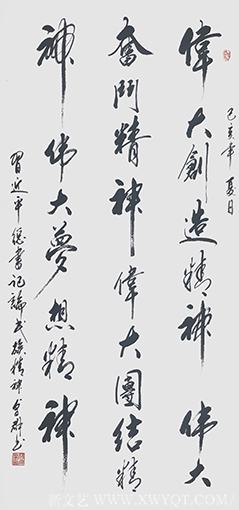 己亥年夏日
偉大創造精神 偉大
奮鬥精神偉大團結精
神 伟大夢想精神
習近平總書记論民族精神
新文艺 WWW.XWYQT.COM